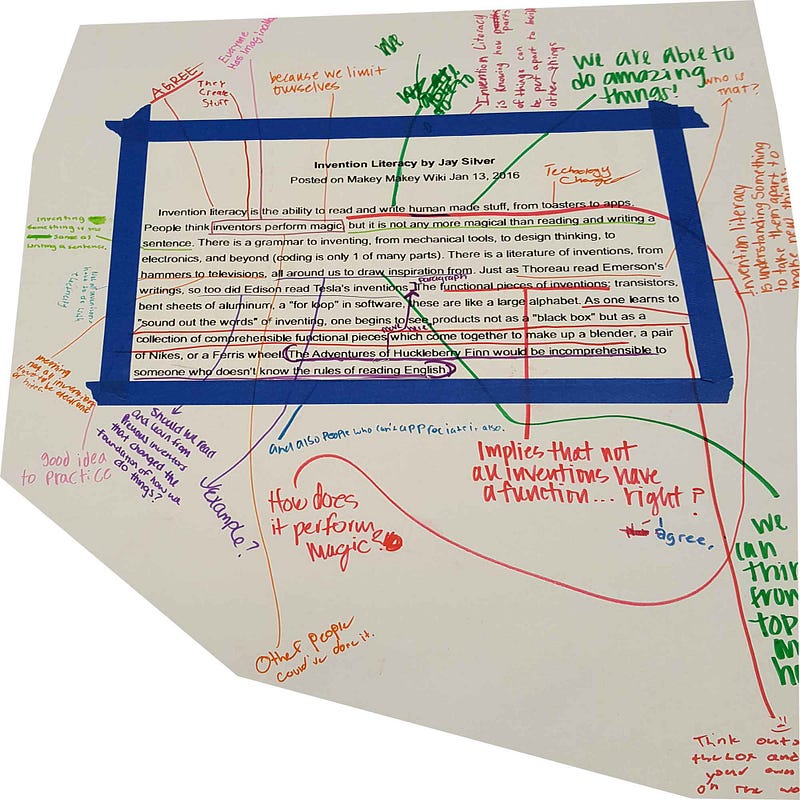 Everyone
Has Imagination
AGREE
They
Create
Stuff
because we limit
ourselves
We
Invention Literacy
is knowing how parts
of things can
be put apart to build
other things
We are able to
do amazing
things!
who is
that?
Invention Literacy by Jay Silver
Posted on Makey Makey Wiki Jan 13, 2016
Technology
Changes
Invention literacy is the ability to read and write human made stuff, from toasters to apps.
People think inventors perform magic, but it is not any more magical than reading and writing a
sentence. There is a grammar to inventing, from mechanical tools, to design thinking, to
electronics, and beyond (coding is only 1 of many parts). There is a literature of inventions, from
hammers to televisions, all around us to draw inspiration from. Just as Thoreau read Emerson's
paragraph
writings, so too did Edison read Tesla's inventions. The functional pieces of inventions; transistors,
bent sheets of aluminum, a "for loop" in software, these are like a large alphabet. As one learns to
"sound out the words" of inventing, one begins to see products not as a "black box" but as a
collection of comprehensible functional pieces which come together to make up a blender, a pair
of Nikes, or a Ferris wheel. The Adventures of Huckleberry Finn would be incomprehensible to
someone who doesn't know the rules of reading English.
Invention literacy
is understanding something
to take them apart to
make new things
Inventing
something is the
same as
writing a sentence.
good idea
to practice
Should we read
and learn from
previous inventors
that changed the
foundation of how we
do things?
example?
and also people who can't appreciate it also.
How does
it perform
magic?
Implies that not
all inventions have
a function... right?
I agree.
We
can
from
top
Other people
could've done it.
Think outs
the box and
your own
on the wo